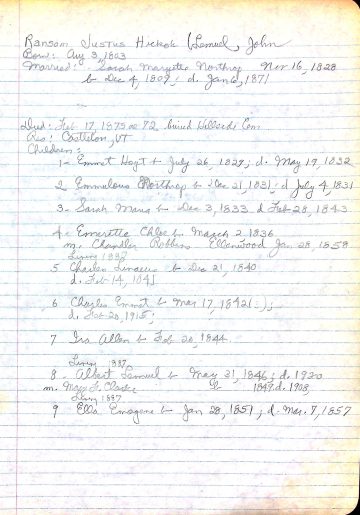 Ransom Justus Hickok (Lemuel, John
Born: Aug 3, 1803
Married: Sarah Maryette Northrop Nov 16, 1828
b Dec 4, 1809; d. Jan 6, 1871
Died: Feb 17, 1875 ae 72 buried Hillside Cem
Res: Castleton, VT
Children:
1- Emmet Hoyt b July 26, 1829; d. May 19, 1832
2 Emmelous Northrop b Dec 21, 1831; d July 4, 1831
3- Sarah Maria b Dec 3, 1833 d Feb 28, 1843
4- Emerette Chloe b March 2 1836
m. Chandler Robbins Ellenwood Jan 28, 1858
Living 1887
5 Charles Linaeus b Dec 21, 1840
d. Feb 14, 1841
6 Charles Emmet b Mar 17, 1842
d. Feb 20, 1915;
7 Ira Allen b Feb 20, 1844
Living 1887
8- Albert Lemuel b May 31, 1846; d. 1920
m. Mary F. Clark b 1847 d. 1908,
Living 1887
9 Ella Emogene b Jan 28, 1851; d. Mar. 7, 1857